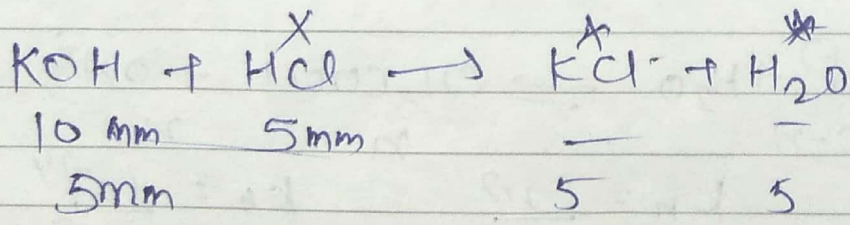 KOH + HCl → KCl + H₂O
10 mm 5mm — —
5mm 5 5